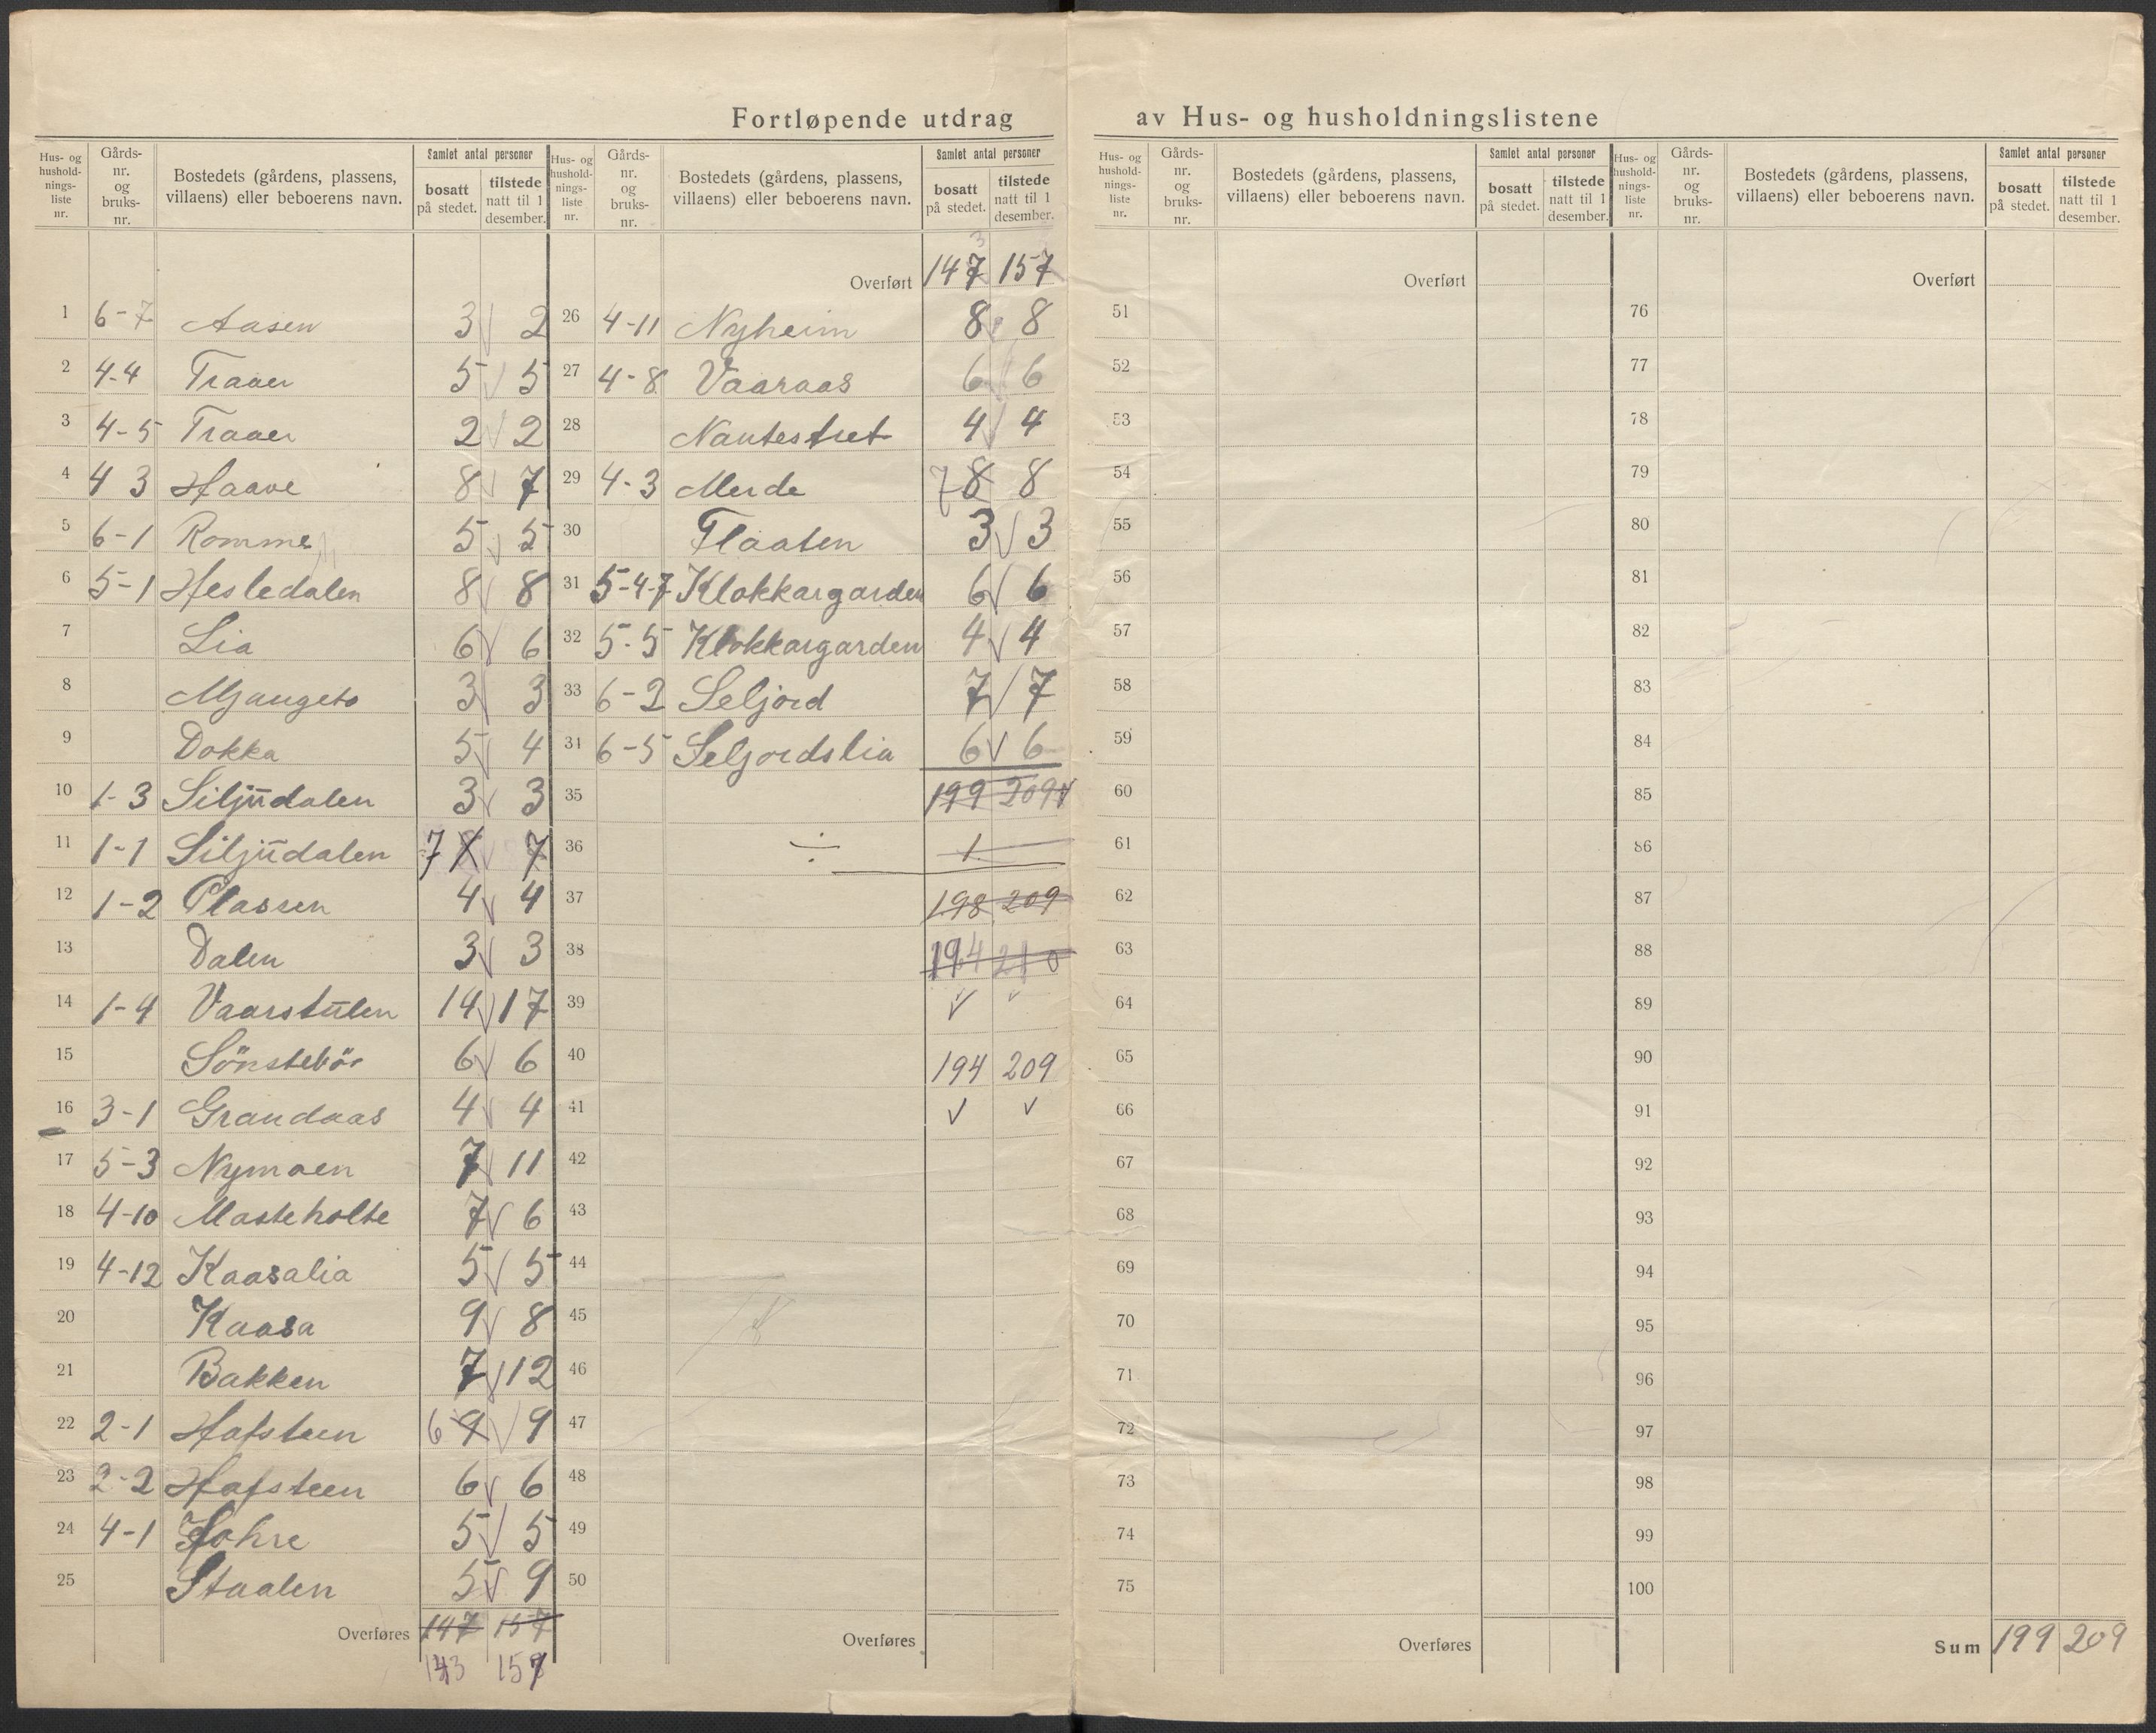 Fortløpende utdrag av Hus- og husholdningslistene
Hus- og hushold-nings-liste nr. | Gårds-nr. og bruks-nr. | Bostedets (gårdens, plassens, villaens) eller beboerens navn. | Samlet antal personer | bosatt på stedet. | tilstede natt til 1 desember.
1 6-7 Aasen 3 2
2 4-4 Traaer 5 5
3 4-5 Traaer 2 2
4 4 3 Haave 8 7
5 6-1 Romme 5 5
6 5-1 Hesledalen 8 8
7 Lia 6 6
8 Mjaugeto 3 3
9 Dokka 5 4
10 1-3 Siljudalen 3 3
11 1-1 Siljudalen 7 8 7
12 1-2 Plassen 4 4
13 Dalen 3 3
14 1-4 Vaarstulen 14 17
15 Sönstebö 6 6
16 3-1 Grandaas 4 4
17 5-3 Nymoen 7 11
18 4-10 Masteholte 7 6
19 4-12 Kaasalia 5 5
20 Kaasa 9 8
21 Bakken 7 12
22 2-1 Hafsteen 6 9 9
23 2-2 Hafsteen 6 6
24 4-1 Hohre 5 5
25 Staalen 5 9
Overføres 147 157
143 157
Hus- og hushold-nings-liste nr. | Gårds-nr. og bruks-nr. | Bostedets (gårdens, plassens, villaens) eller beboerens navn. | Samlet antal personer | bosatt på stedet. | tilstede natt til 1 desember.
3
Overført 147 157
26 4-11 Nyheim 8 8
27 4-8 Vaaraas 6 6
28 Nautestret 4 4
29 4-3 Merde 7 8 8
30 Flaaten 3 3
31 5-4-7 Klokkargarden 6 6
32 5-5 Klokkargarden 4 4
33 6-2 Seljord 7 7
34 6-5 Seljordslia 6 6
35 199 209
36 ÷ 1
37 198 209
38 194 210
39
40 194 209
41
42
43
44
45
46
47
48
49
50
Overføres
Hus- og hushold-nings-liste nr. | Gårds-nr. og bruks-nr. | Bostedets (gårdens, plassens, villaens) eller beboerens navn. | Samlet antal personer | bosatt på stedet. | tilstede natt til 1 desember.
Overført
51
52
53
54
55
56
57
58
59
60
61
62
63
64
65
66
67
68
69
70
71
72
73
74
75
Overføres
Hus- og hushold-nings-liste nr. | Gårds-nr. og bruks-nr. | Bostedets (gårdens, plassens, villaens) eller beboerens navn. | Samlet antal personer | bosatt på stedet. | tilstede natt til 1 desember.
Overført
76
77
78
79
80
81
82
83
84
85
86
87
88
89
90
91
92
93
94
95
96
97
98
99
100
Sum 199 209